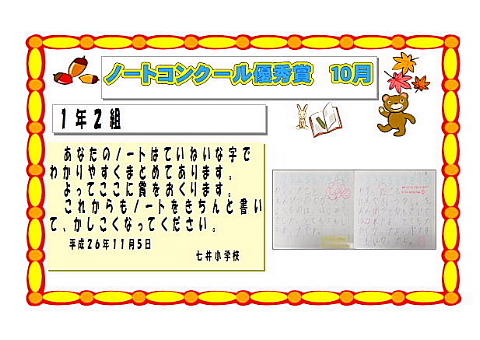 ノートコンクール優秀賞　10月
１年２組
あなたのノートはていねいな字で
わかりやすくまとめてあります。
よってここに賞をおくります。
これからもノートをきちんと書い
て、かしこくなってください。
平成２６年１１月５日
七井小学校